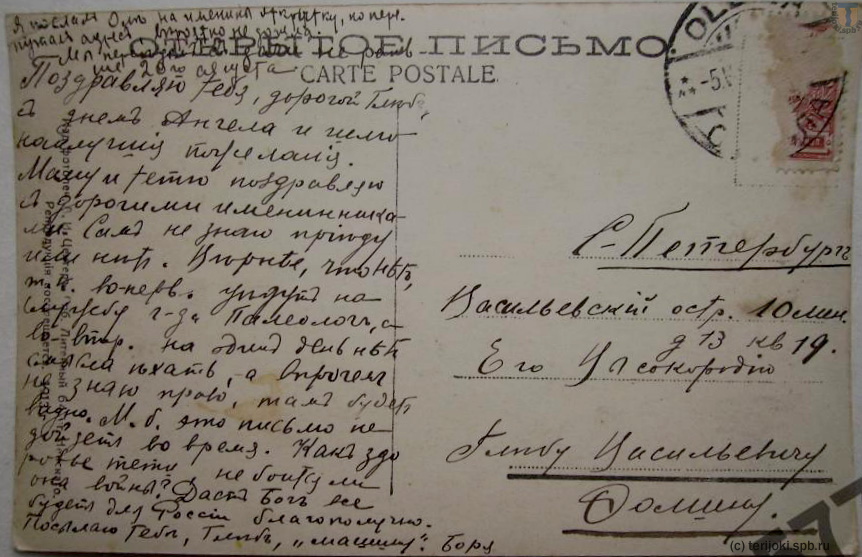 Я послалъ Олѣ на именины открытку, но пере-
ОТКРЫТОЕ ПИСЬМО.
CARTE POSTALE.
ше 20го августа
Поздравляю тебя, дорогой Глѣбъ,
съ днемъ Ангела и шлю
наилучшія пожеланія.
Маму и тетю поздравляю
съ дорогими именинника-
ми. Самъ не знаю пріѣду
или нѣтъ. Вѣрнѣе, что нѣтъ,
т. к. во-перв. уйдутъ на
службу г-да Палеологъ, а
во-втор. на одинъ день нѣтъ
смысла ѣхать, а впрочемъ
не знаю право, тамъ будетъ
видно. М. б. это письмо не
дойдетъ во время. Какъ здо
ровье тети не боится ли
она войны? Дастъ Богъ все
будетъ для Россіи благополучно.
Посылаю тебѣ, Глѣбъ, „машину". Боря
С-Петербургъ
Васильевскій остр. 10 лин.
д 13 кв 19.
Его Высокородію
Глѣбу Васильевичу
Фомину.
(c) terijoki.spb.ru